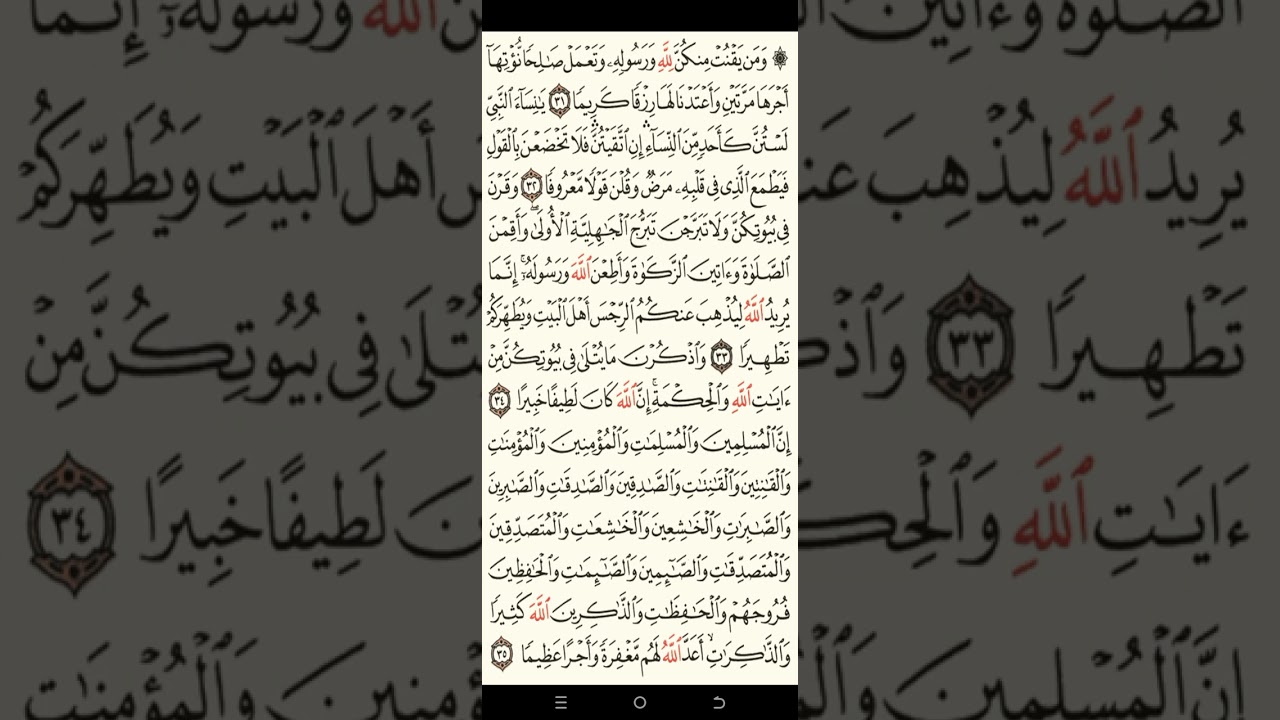 ۞ وَمَن يَقْنُتْ مِنكُنَّ لِلَّهِ وَرَسُولِهِۦ وَتَعْمَلْ صَـٰلِحًا نُّؤْتِهَآ
أَجْرَهَا مَرَّتَيْنِ وَأَعْتَدْنَا لَهَا رِزْقًا كَرِيمًا ٣١ يَـٰنِسَآءَ ٱلنَّبِىِّ
لَسْتُنَّ كَأَحَدٍ مِّنَ ٱلنِّسَآءِ ۚ إِنِ ٱتَّقَيْتُنَّ فَلَا تَخْضَعْنَ بِٱلْقَوْلِ
فَيَطْمَعَ ٱلَّذِى فِى قَلْبِهِۦ مَرَضٌ وَقُلْنَ قَوْلًا مَّعْرُوفًا ٣٢ وَقَرْنَ
فِى بُيُوتِكُنَّ وَلَا تَبَرَّجْنَ تَبَرُّجَ ٱلْجَـٰهِلِيَّةِ ٱلْأُولَىٰ ۖ وَأَقِمْنَ
ٱلصَّلَوٰةَ وَءَاتِينَ ٱلزَّكَوٰةَ وَأَطِعْنَ ٱللَّهَ وَرَسُولَهُۥٓ ۚ إِنَّمَا
يُرِيدُ ٱللَّهُ لِيُذْهِبَ عَنكُمُ ٱلرِّجْسَ أَهْلَ ٱلْبَيْتِ وَيُطَهِّرَكُمْ
تَطْهِيرًا ٣٣ وَٱذْكُرْنَ مَا يُتْلَىٰ فِى بُيُوتِكُنَّ مِنْ
ءَايَـٰتِ ٱللَّهِ وَٱلْحِكْمَةِ ۚ إِنَّ ٱللَّهَ كَانَ لَطِيفًا خَبِيرًا ٣٤
إِنَّ ٱلْمُسْلِمِينَ وَٱلْمُسْلِمَـٰتِ وَٱلْمُؤْمِنِينَ وَٱلْمُؤْمِنَـٰتِ
وَٱلْقَـٰنِتِينَ وَٱلْقَـٰنِتَـٰتِ وَٱلصَّـٰدِقِينَ وَٱلصَّـٰدِقَـٰتِ وَٱلصَّـٰبِرِينَ
وَٱلصَّـٰبِرَٰتِ وَٱلْخَـٰشِعِينَ وَٱلْخَـٰشِعَـٰتِ وَٱلْمُتَصَدِّقِينَ
وَٱلْمُتَصَدِّقَـٰتِ وَٱلصَّـٰٓئِمِينَ وَٱلصَّـٰٓئِمَـٰتِ وَٱلْحَـٰفِظِينَ
فُرُوجَهُمْ وَٱلْحَـٰفِظَـٰتِ وَٱلذَّٰكِرِينَ ٱللَّهَ كَثِيرًا
وَٱلذَّٰكِرَٰتِ أَعَدَّ ٱللَّهُ لَهُم مَّغْفِرَةً وَأَجْرًا عَظِيمًا ٣٥